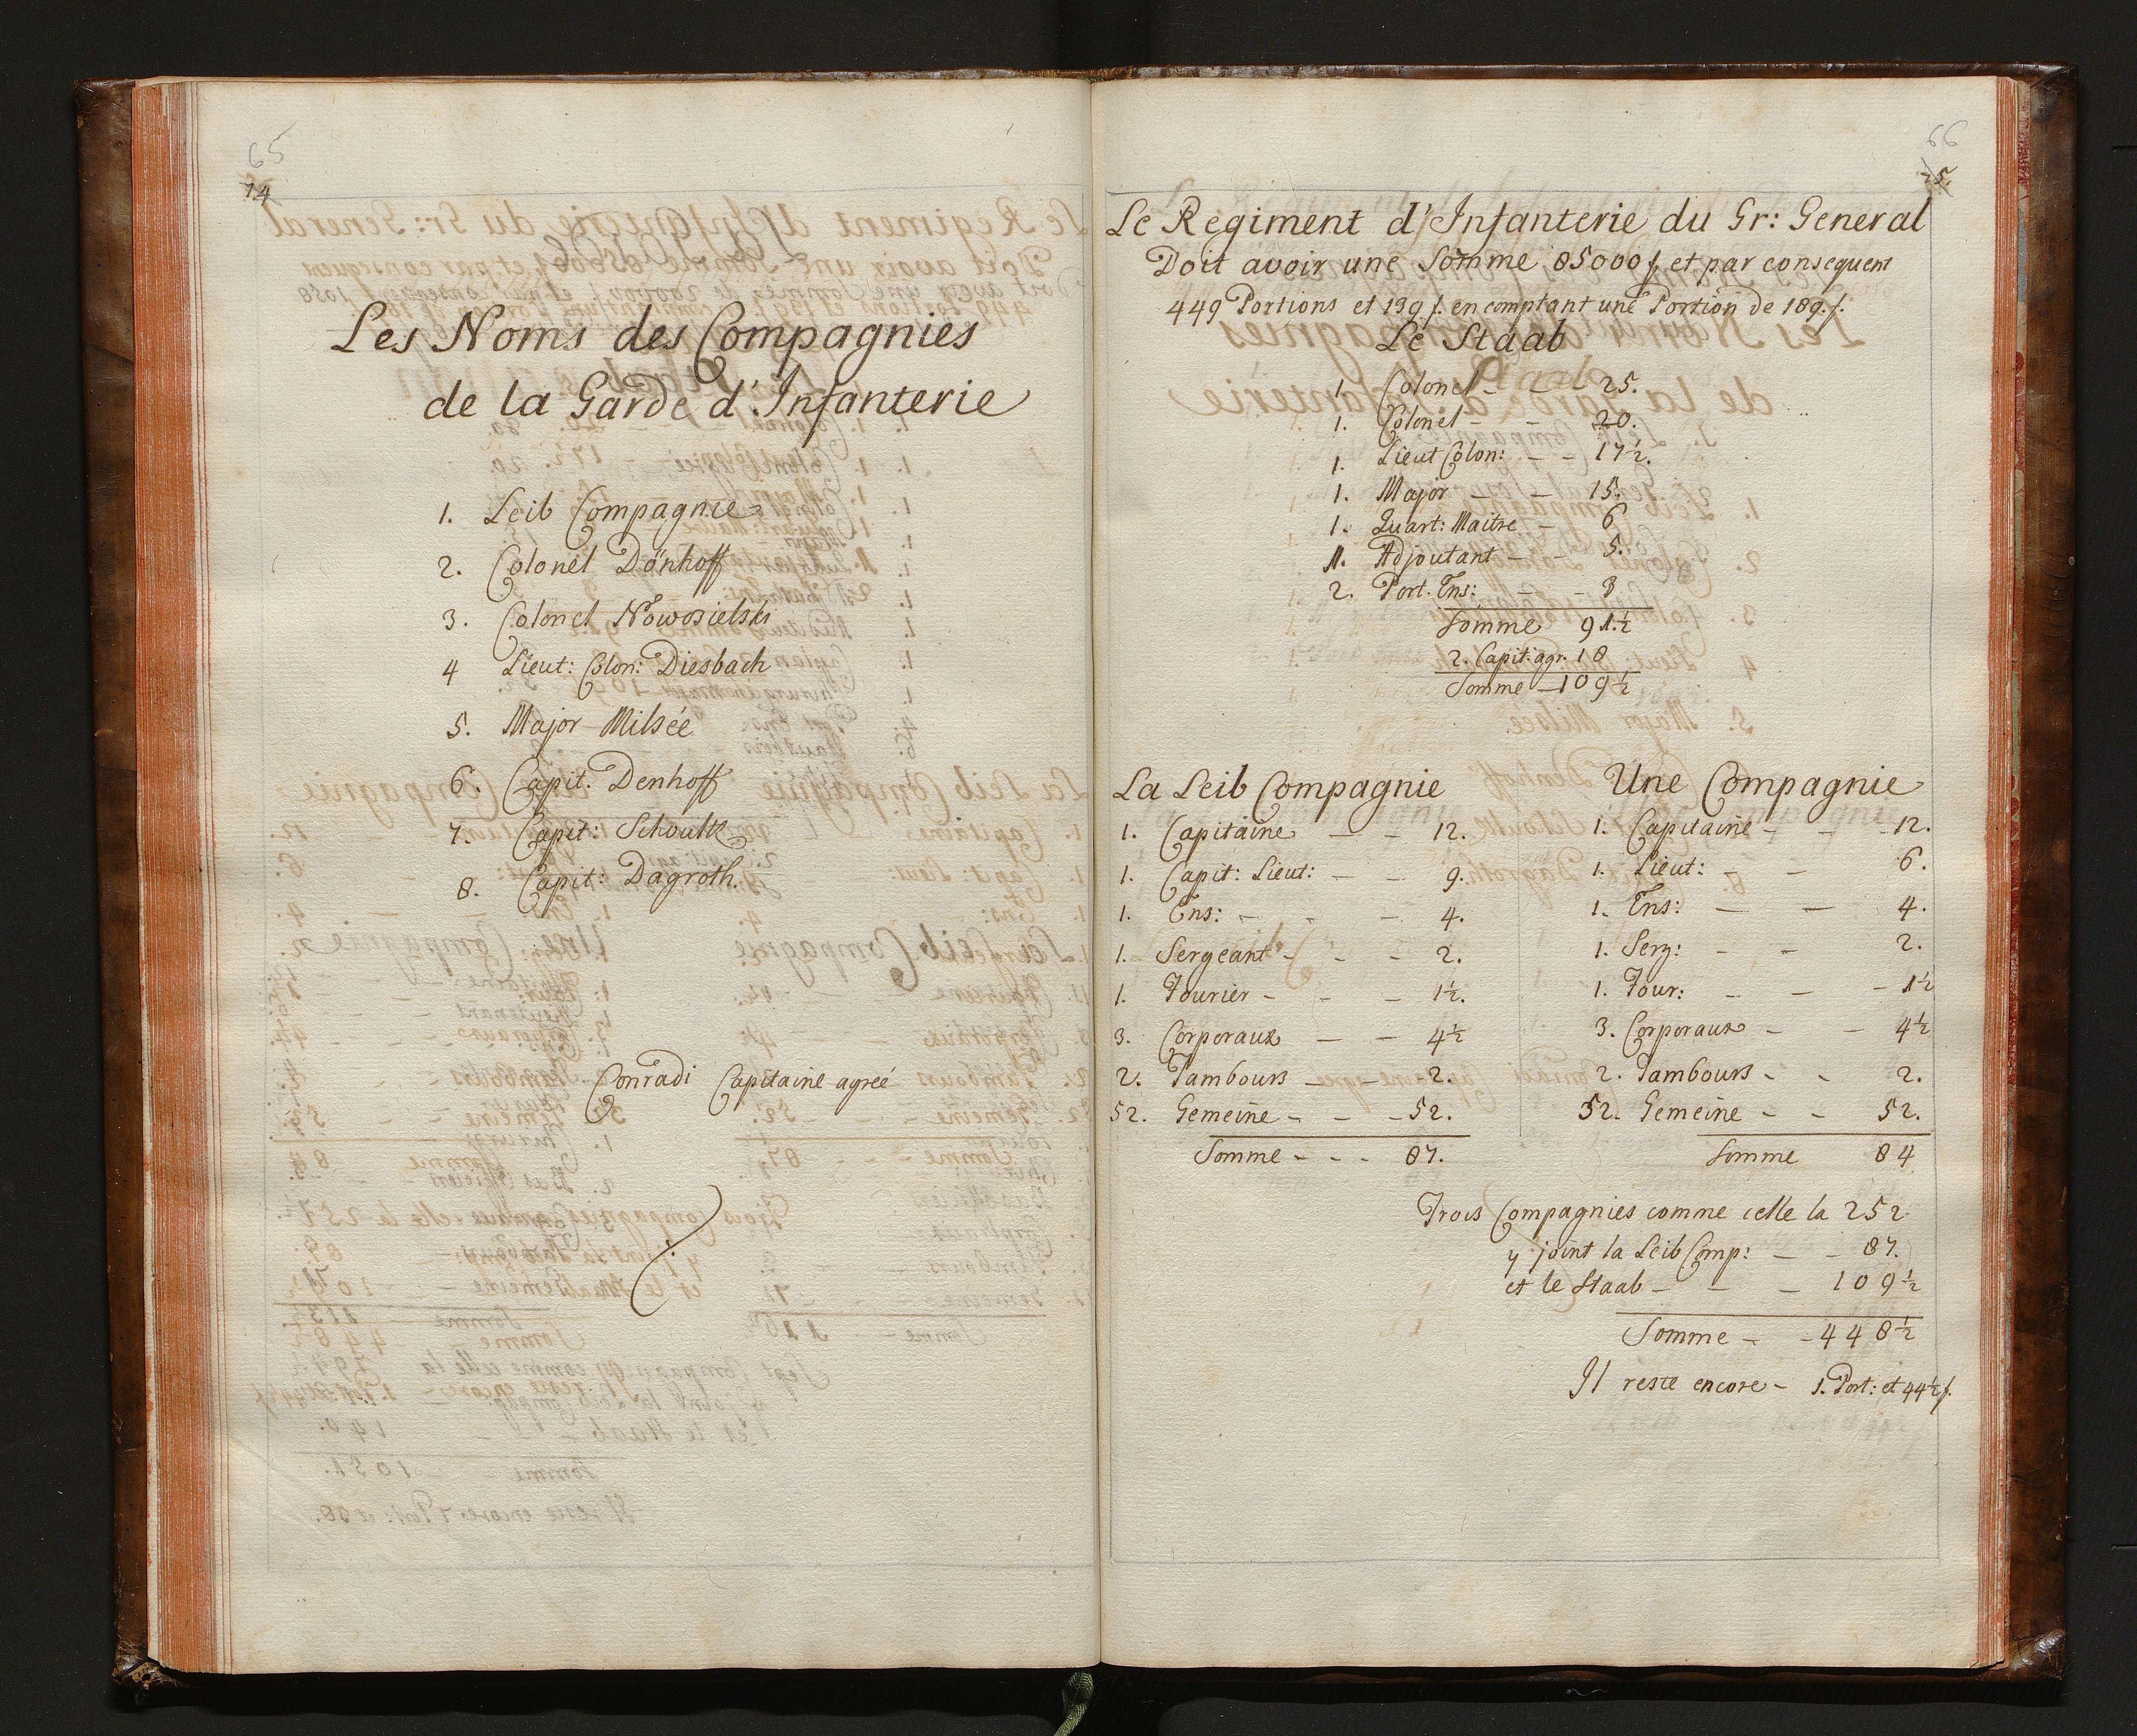 65
74
Les Noms des Compagnies
de la Garde d'Infanterie
1. Leib Compagnie
2. Colonel Dönhoff
3. Colonel Nowosielski
4 Lieut: Colon: Diesbach
5. Major Milsée
6. Capit. Denhoff
7. Capit: Schoultz
8. Capit: Dagroth.
Conradi Capitaine agreé
66
75.
Le Regiment d'Infanterie du Gr: General
Doit avoir une Somme 85000 f. et par consequent
449 Portions et 139 f. en comptant une Portion de 189. f.
Le Staab
1. Colonel - - 25.
1. Colonel - - 20.
1. Lieut Colon: - - 17½.
1. Major - - 15.
1. Quart: Maitre - 6
1. Adjoutant - - 5.
2. Port. Ens: - - 3
Somme 91½
2. Capit: agr. 18
Somme - 109½
La Leib Compagnie
1. Capitaine - - 12.
1. Capit: Lieut: - - 9.
1. Ens: - - - 4.
1. Sergeant - - - 2.
1. Fourier - - - 1½.
3. Corporaux - - 4½
2. Tambours - - 2.
52. Gemeine - - - 52.
Somme - - - 87.
Une Compagnie
1. Capitaine - - - 12.
1. Lieut: - - 6.
1. Ens: - - 4.
1. Serg: - - 2.
1. Four: - - - 1½
3. Corporaux - - 4½
2. Tambours - - 2.
52. Gemeine - - 52.
Somme 84
Trois Compagnies comme celle la 252
y joint la Leib Comp: - - 87.
et le Staab - - - 109½
Somme - - 448½
Il reste encore - 1. Port: et 44½ f.